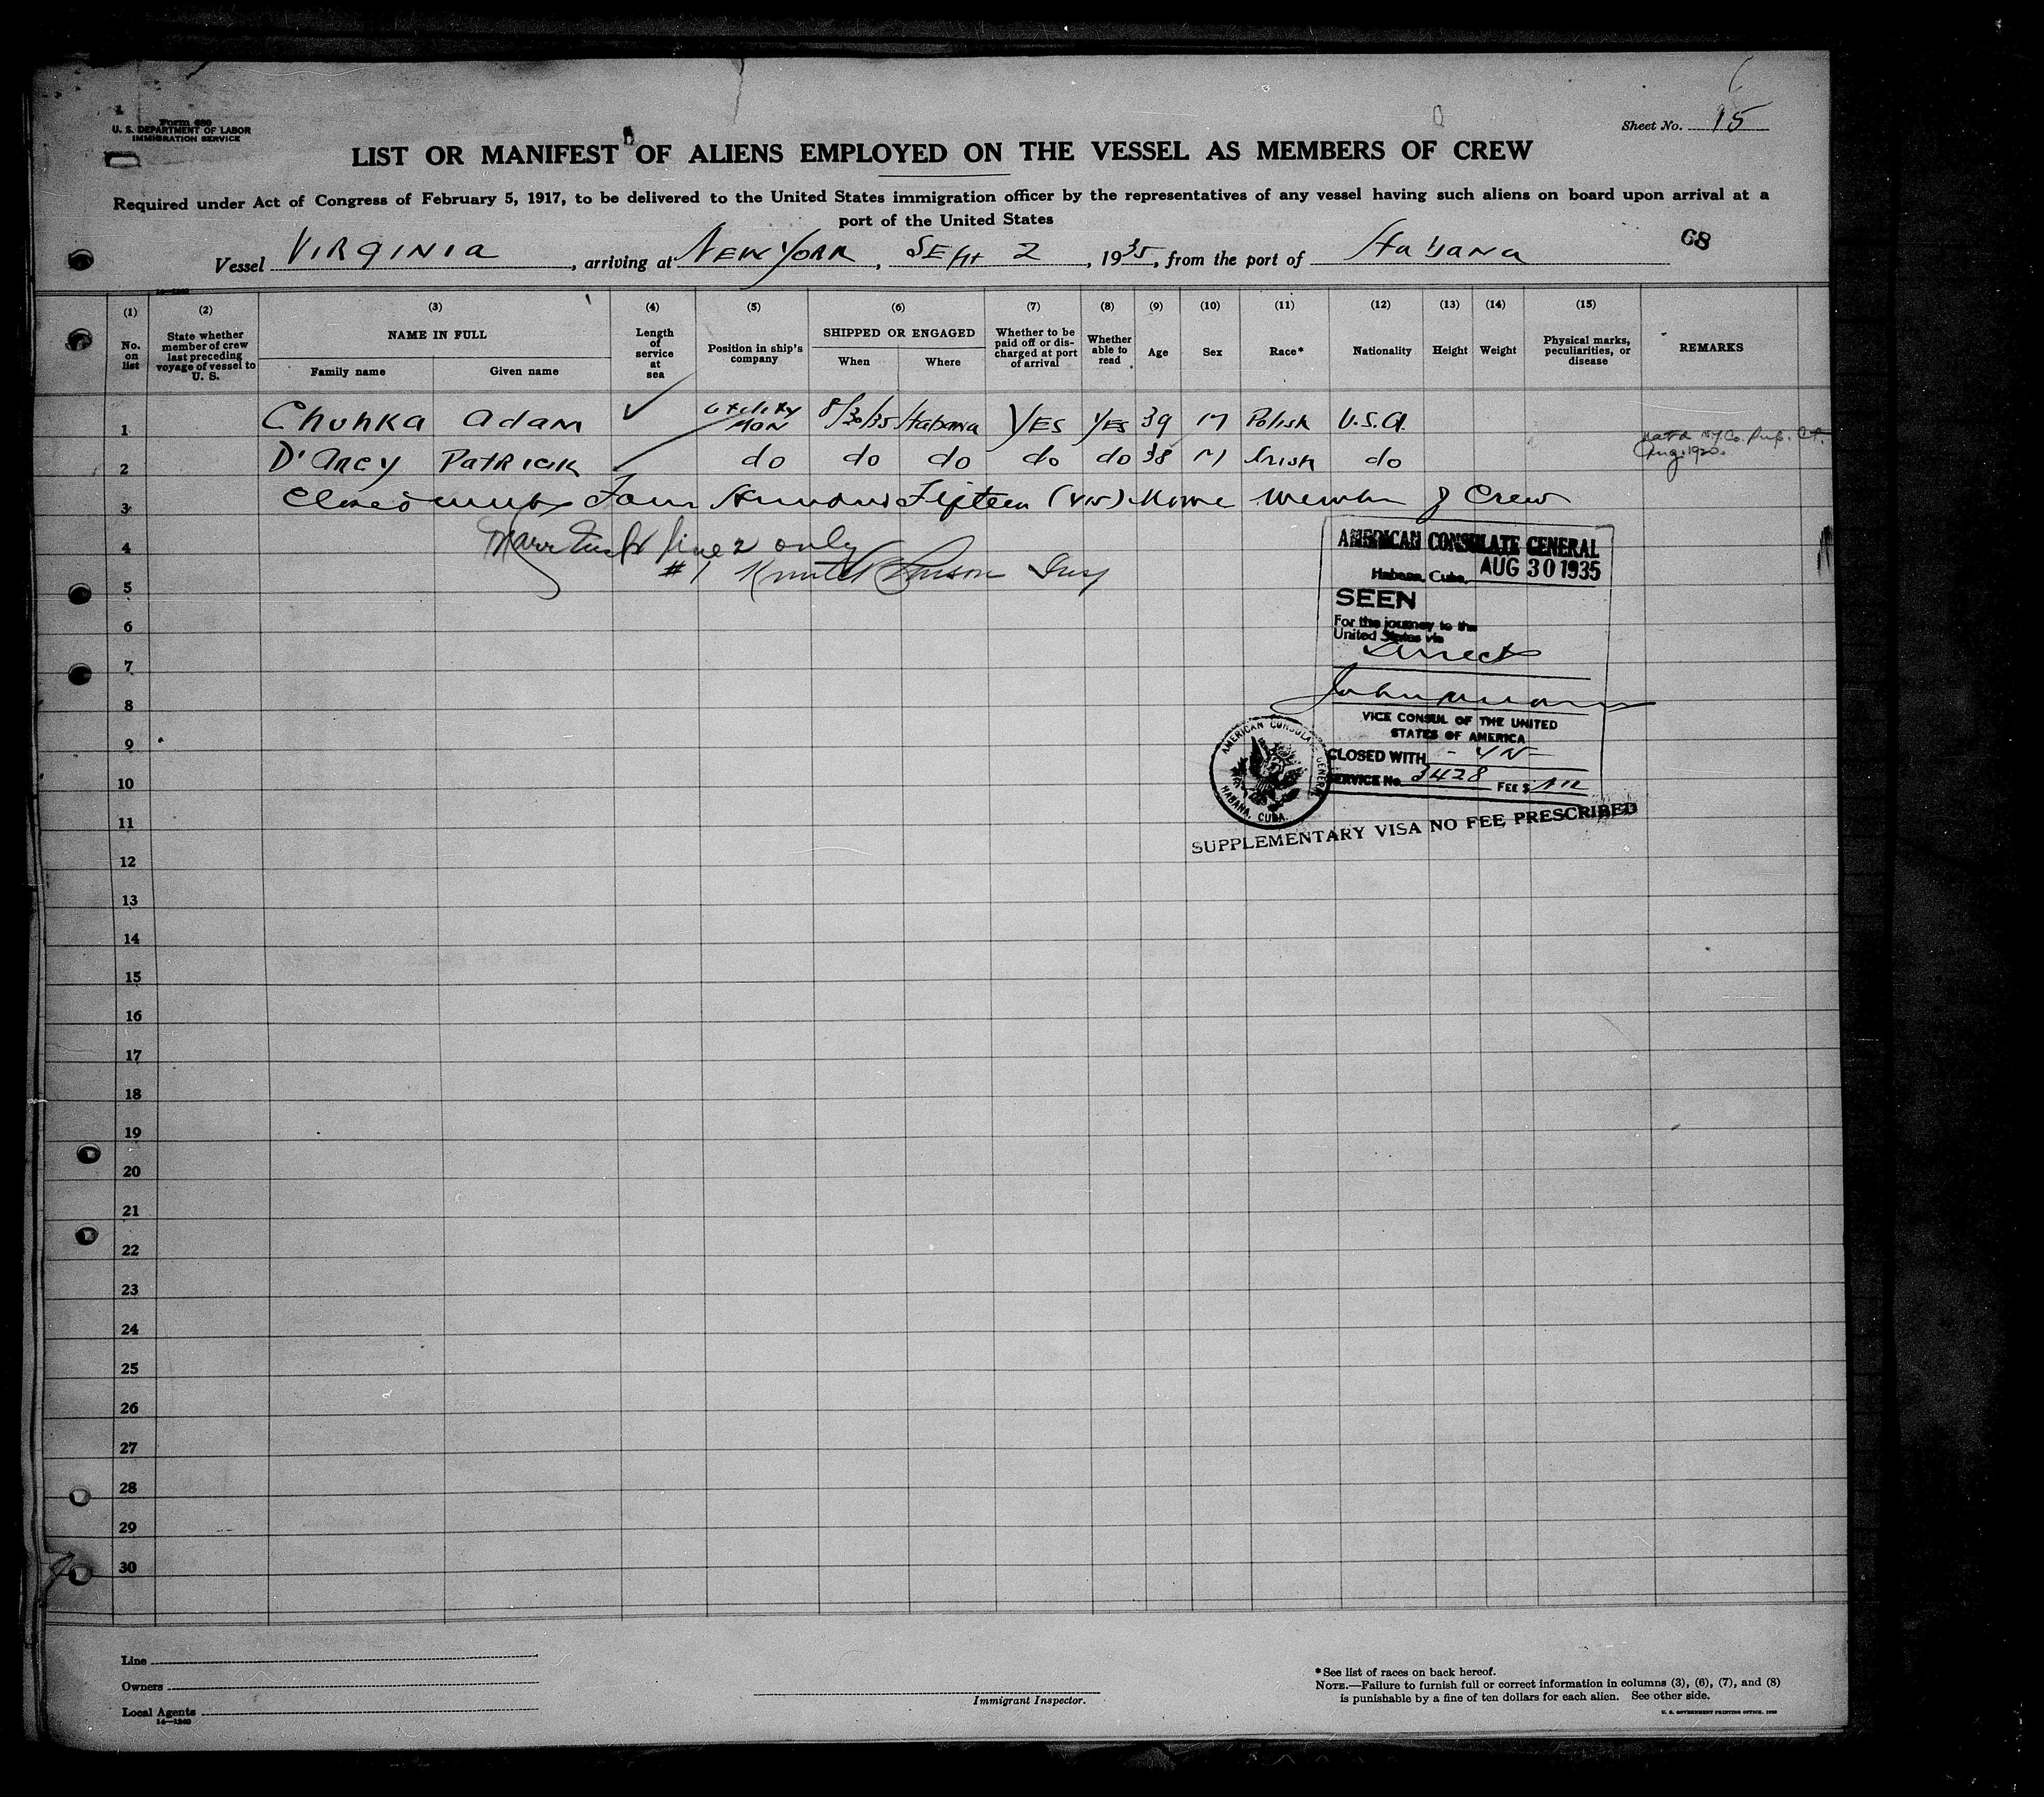 Form 680
U. S. DEPARTMENT OF LABOR
IMMIGRATION SERVICE
Sheet No. 15
LIST OR MANIFEST OF ALIENS EMPLOYED ON THE VESSEL AS MEMBERS OF CREW
Required under Act of Congress of February 5, 1917, to be delivered to the United States immigration officer by the representatives of any vessel having such aliens on board upon arrival at a
port of the United States
68
Vessel VIRGINIA, arriving at NEW YORK, SEPT 2, 1935, from the port of Habana
(1) (2) (3) (4) (5) (6) (7) (8) (9) (10) (11) (12) (13) (14) (15)
No. on list
State whether member of crew last preceding voyage of vessel to U. S.
NAME IN FULL
Family name Given name
Length of service at sea
Position in ship's company
SHIPPED OR ENGAGED
When Where
Whether to be paid off or discharged at port of arrival
Whether able to read
Age
Sex
Race*
Nationality
Height
Weight
Physical marks, peculiarities, or disease
REMARKS
1 Chuhka Adam ✓ Utility Man 8/30/35 Habana YES YES 39 M Polish U.S.A.
2 D'Arcy Patrick do do do do do 38 M Irish do
Aug. 1920.
3 Four Hundred Fifteen (415) Crew
4 line 2 only
5 #1
6
7
8
9
10
11
12
13
14
15
16
17
18
19
20
21
22
23
24
25
26
27
28
29
30
AMERICAN CONSULATE GENERAL
Habana, Cuba, AUG 30 1935
SEEN
For the journey to the
United States via
Direct
VICE CONSUL OF THE UNITED
STATES OF AMERICA
CLOSED WITH
SERVICE No. 3428 FEE $
AMERICAN CONSULATE GENERAL
HABANA, CUBA.
SUPPLEMENTARY VISA NO FEE PRESCRIBED
Line
Owners
Local Agents
14—1240
Immigrant Inspector.
*See list of races on back hereof.
NOTE.—Failure to furnish full or correct information in columns (3), (6), (7), and (8)
is punishable by a fine of ten dollars for each alien. See other side.
U. S. GOVERNMENT PRINTING OFFICE